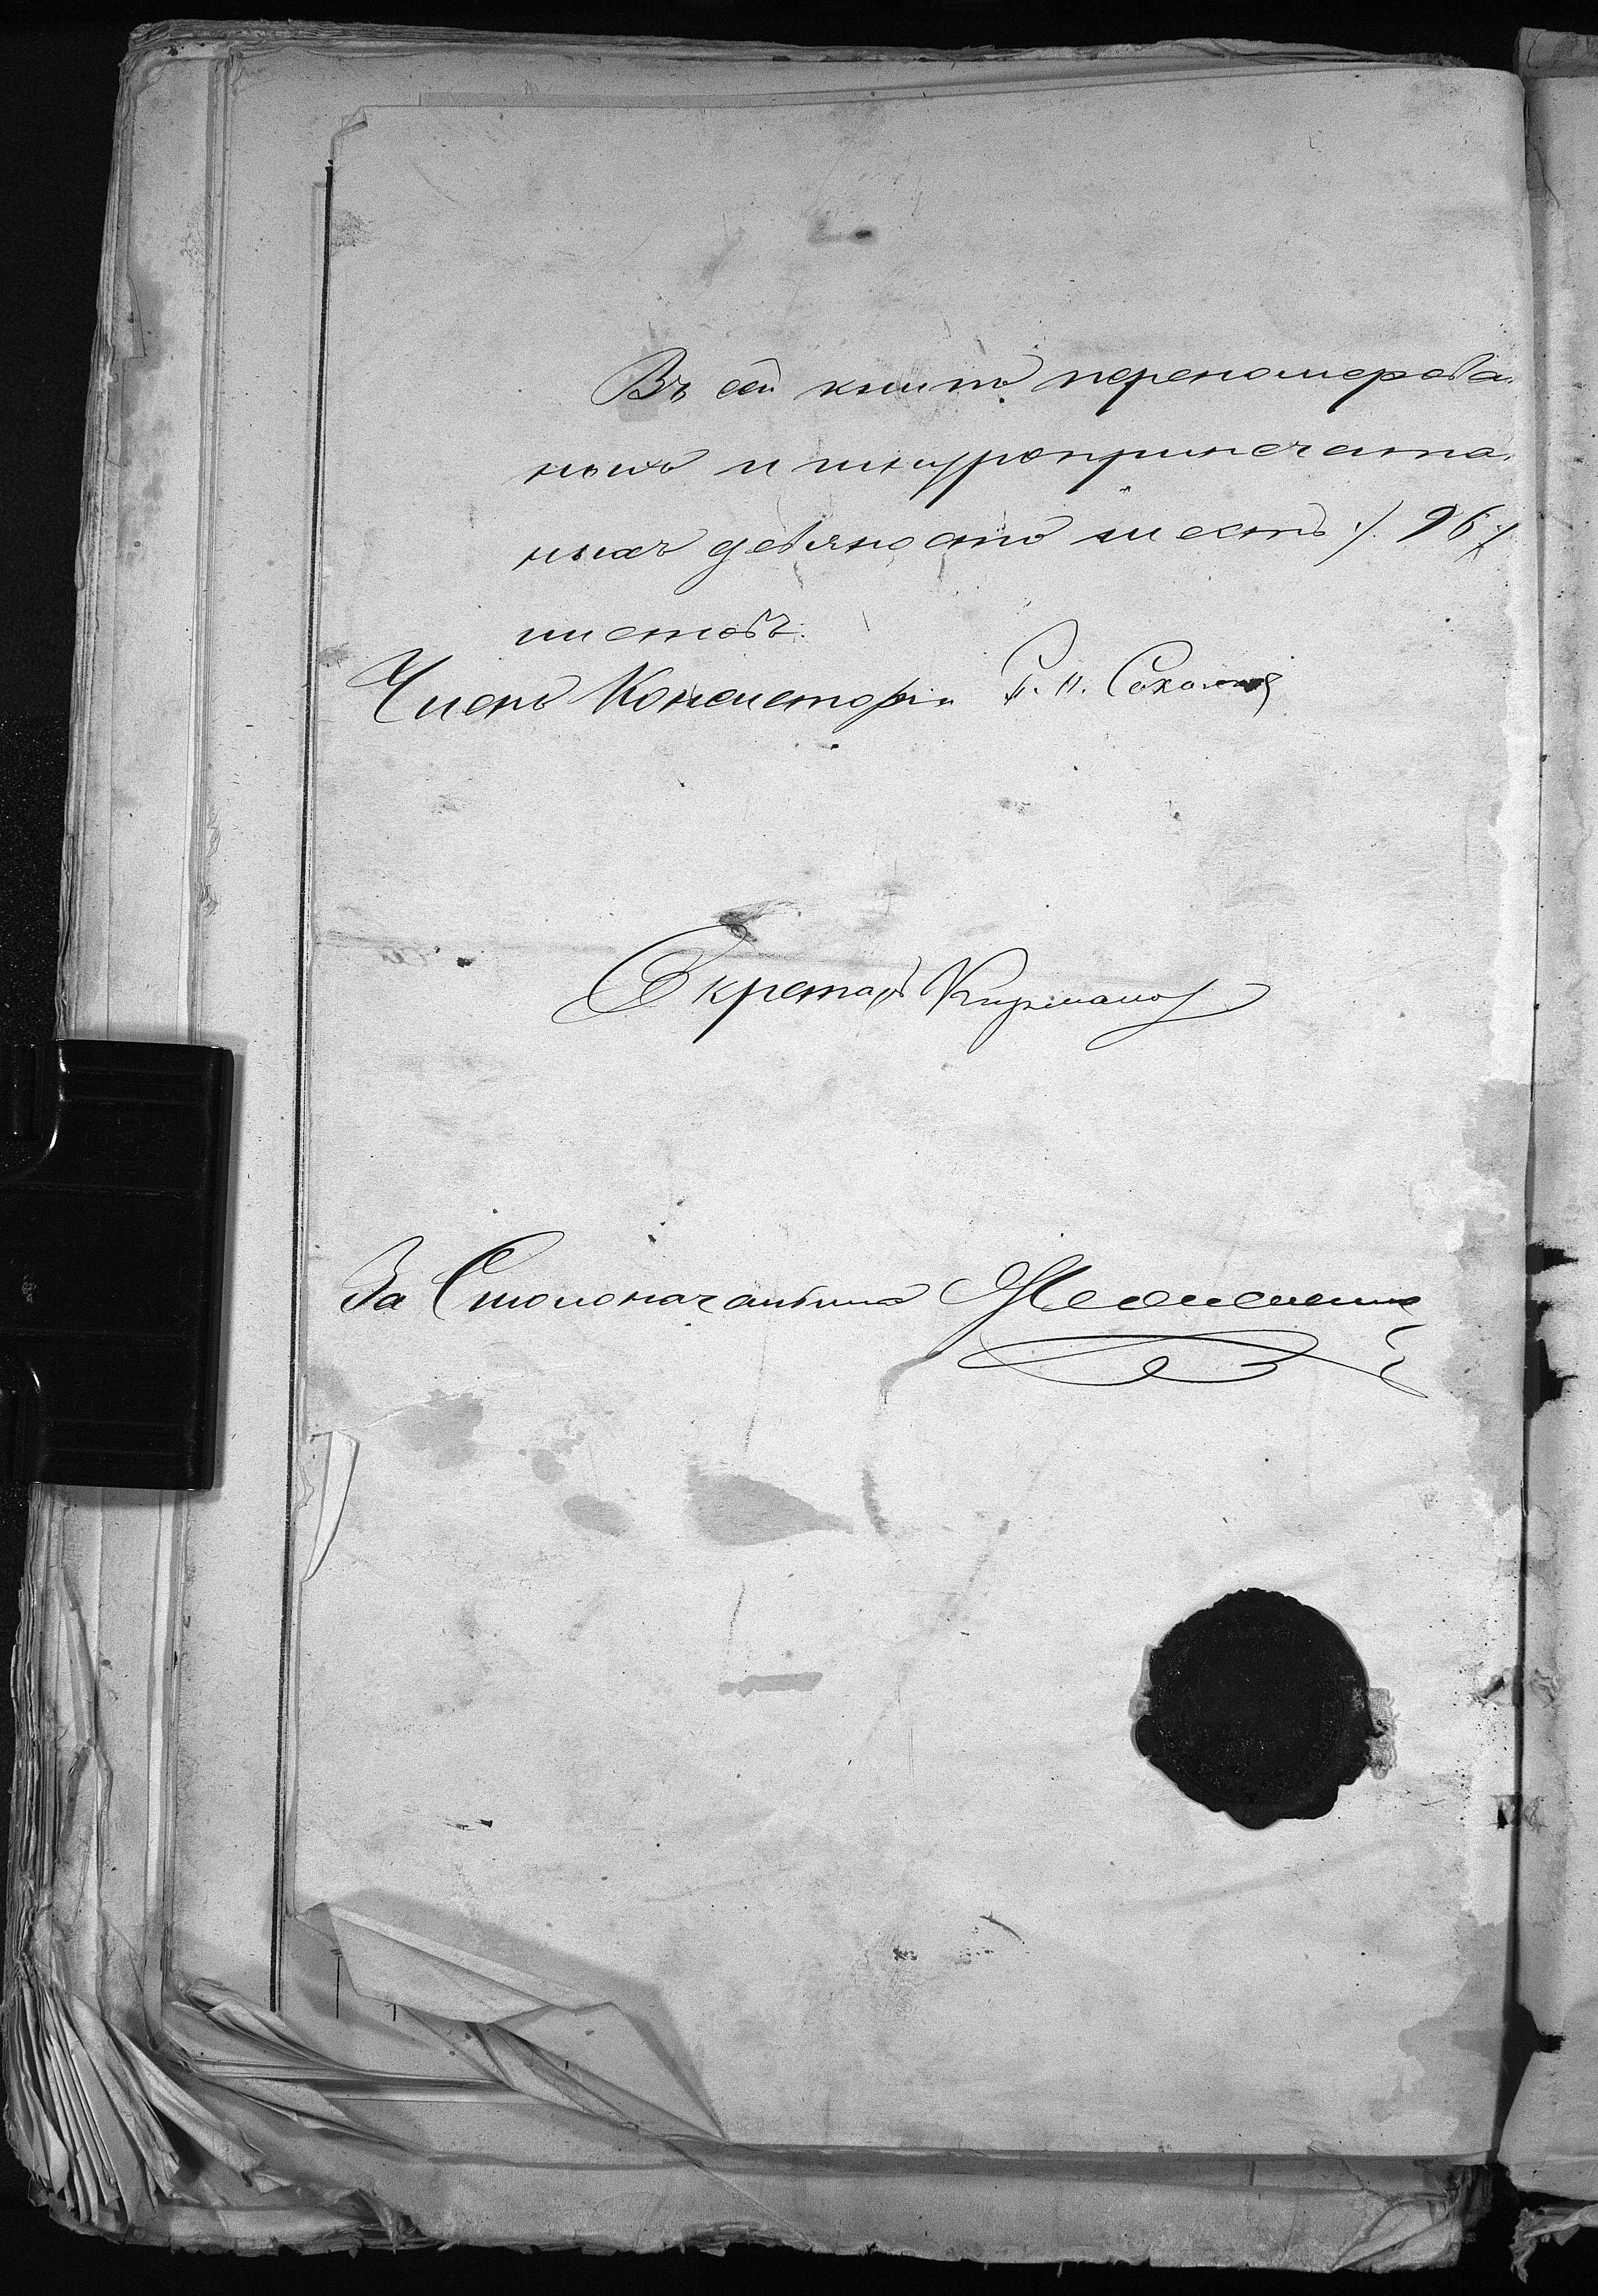 Въ сей книгѣ перенумерова-
ныхъ и шнуроприпечата-
ныхъ девяносто шесть ./. 96 ./.
листовъ.
Членъ Консисторіи С. П.
Секретарь
За Столоначальника